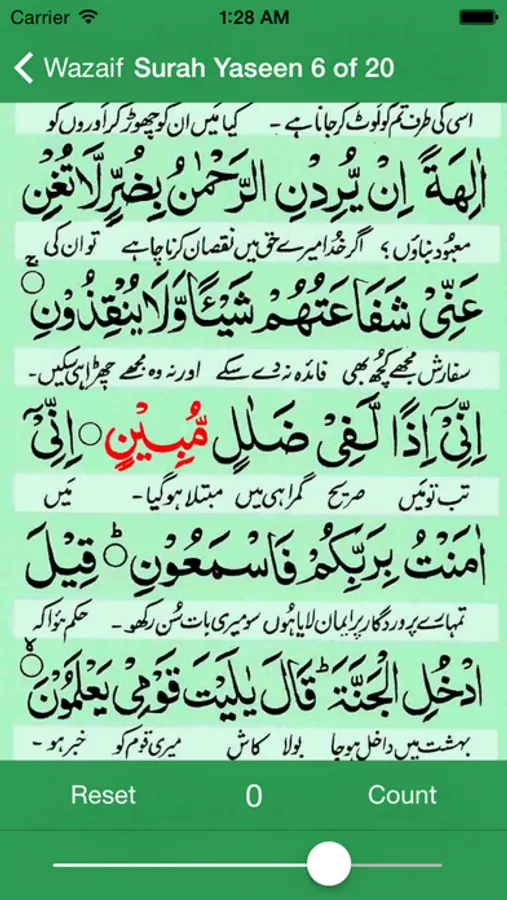 Carrier 1:28 AM
Wazaif Surah Yaseen 6 of 20
اسی کی طرف تم کو لوٹ کر جانا ہے ۔ کیا میں ان کو چھوڑ کر اوروں کو
اٰلِهَةً اِنْ يُّرِدْنِ الرَّحْمٰنُ بِضُرٍّ لَّا تُغْنِ
معبود بناؤں؟ اگر خدا میرے حق میں نقصان کرنا چاہے تو ان کی
عَنِّيْ شَفَاعَتُهُمْ شَيْـًٔا وَّلَا يُنْقِذُوْنِ ۚ
سفارش مجھے کچھ بھی فائدہ نہ دے سکے اور نہ وہ مجھے چھڑا ہی سکیں۔
اِنِّيْٓ اِذًا لَّفِيْ ضَلٰلٍ مُّبِيْنٍ ○ اِنِّيْٓ
تب تو میں صریح گمراہی میں مبتلا ہو گیا۔ میں
اٰمَنْتُ بِرَبِّكُمْ فَاسْمَعُوْنِ ؕ قِيْلَ
تمہارے پروردگار پر ایمان لایا ہوں سو میری بات سُن رکھو۔ حکم ہوا کہ
ادْخُلِ الْجَنَّةَ ؕ قَالَ يٰلَيْتَ قَوْمِيْ يَعْلَمُوْنَ ۙ
بہشت میں داخل ہو جا بولا کاش میری قوم کو خبر ہو۔
Reset 0 Count